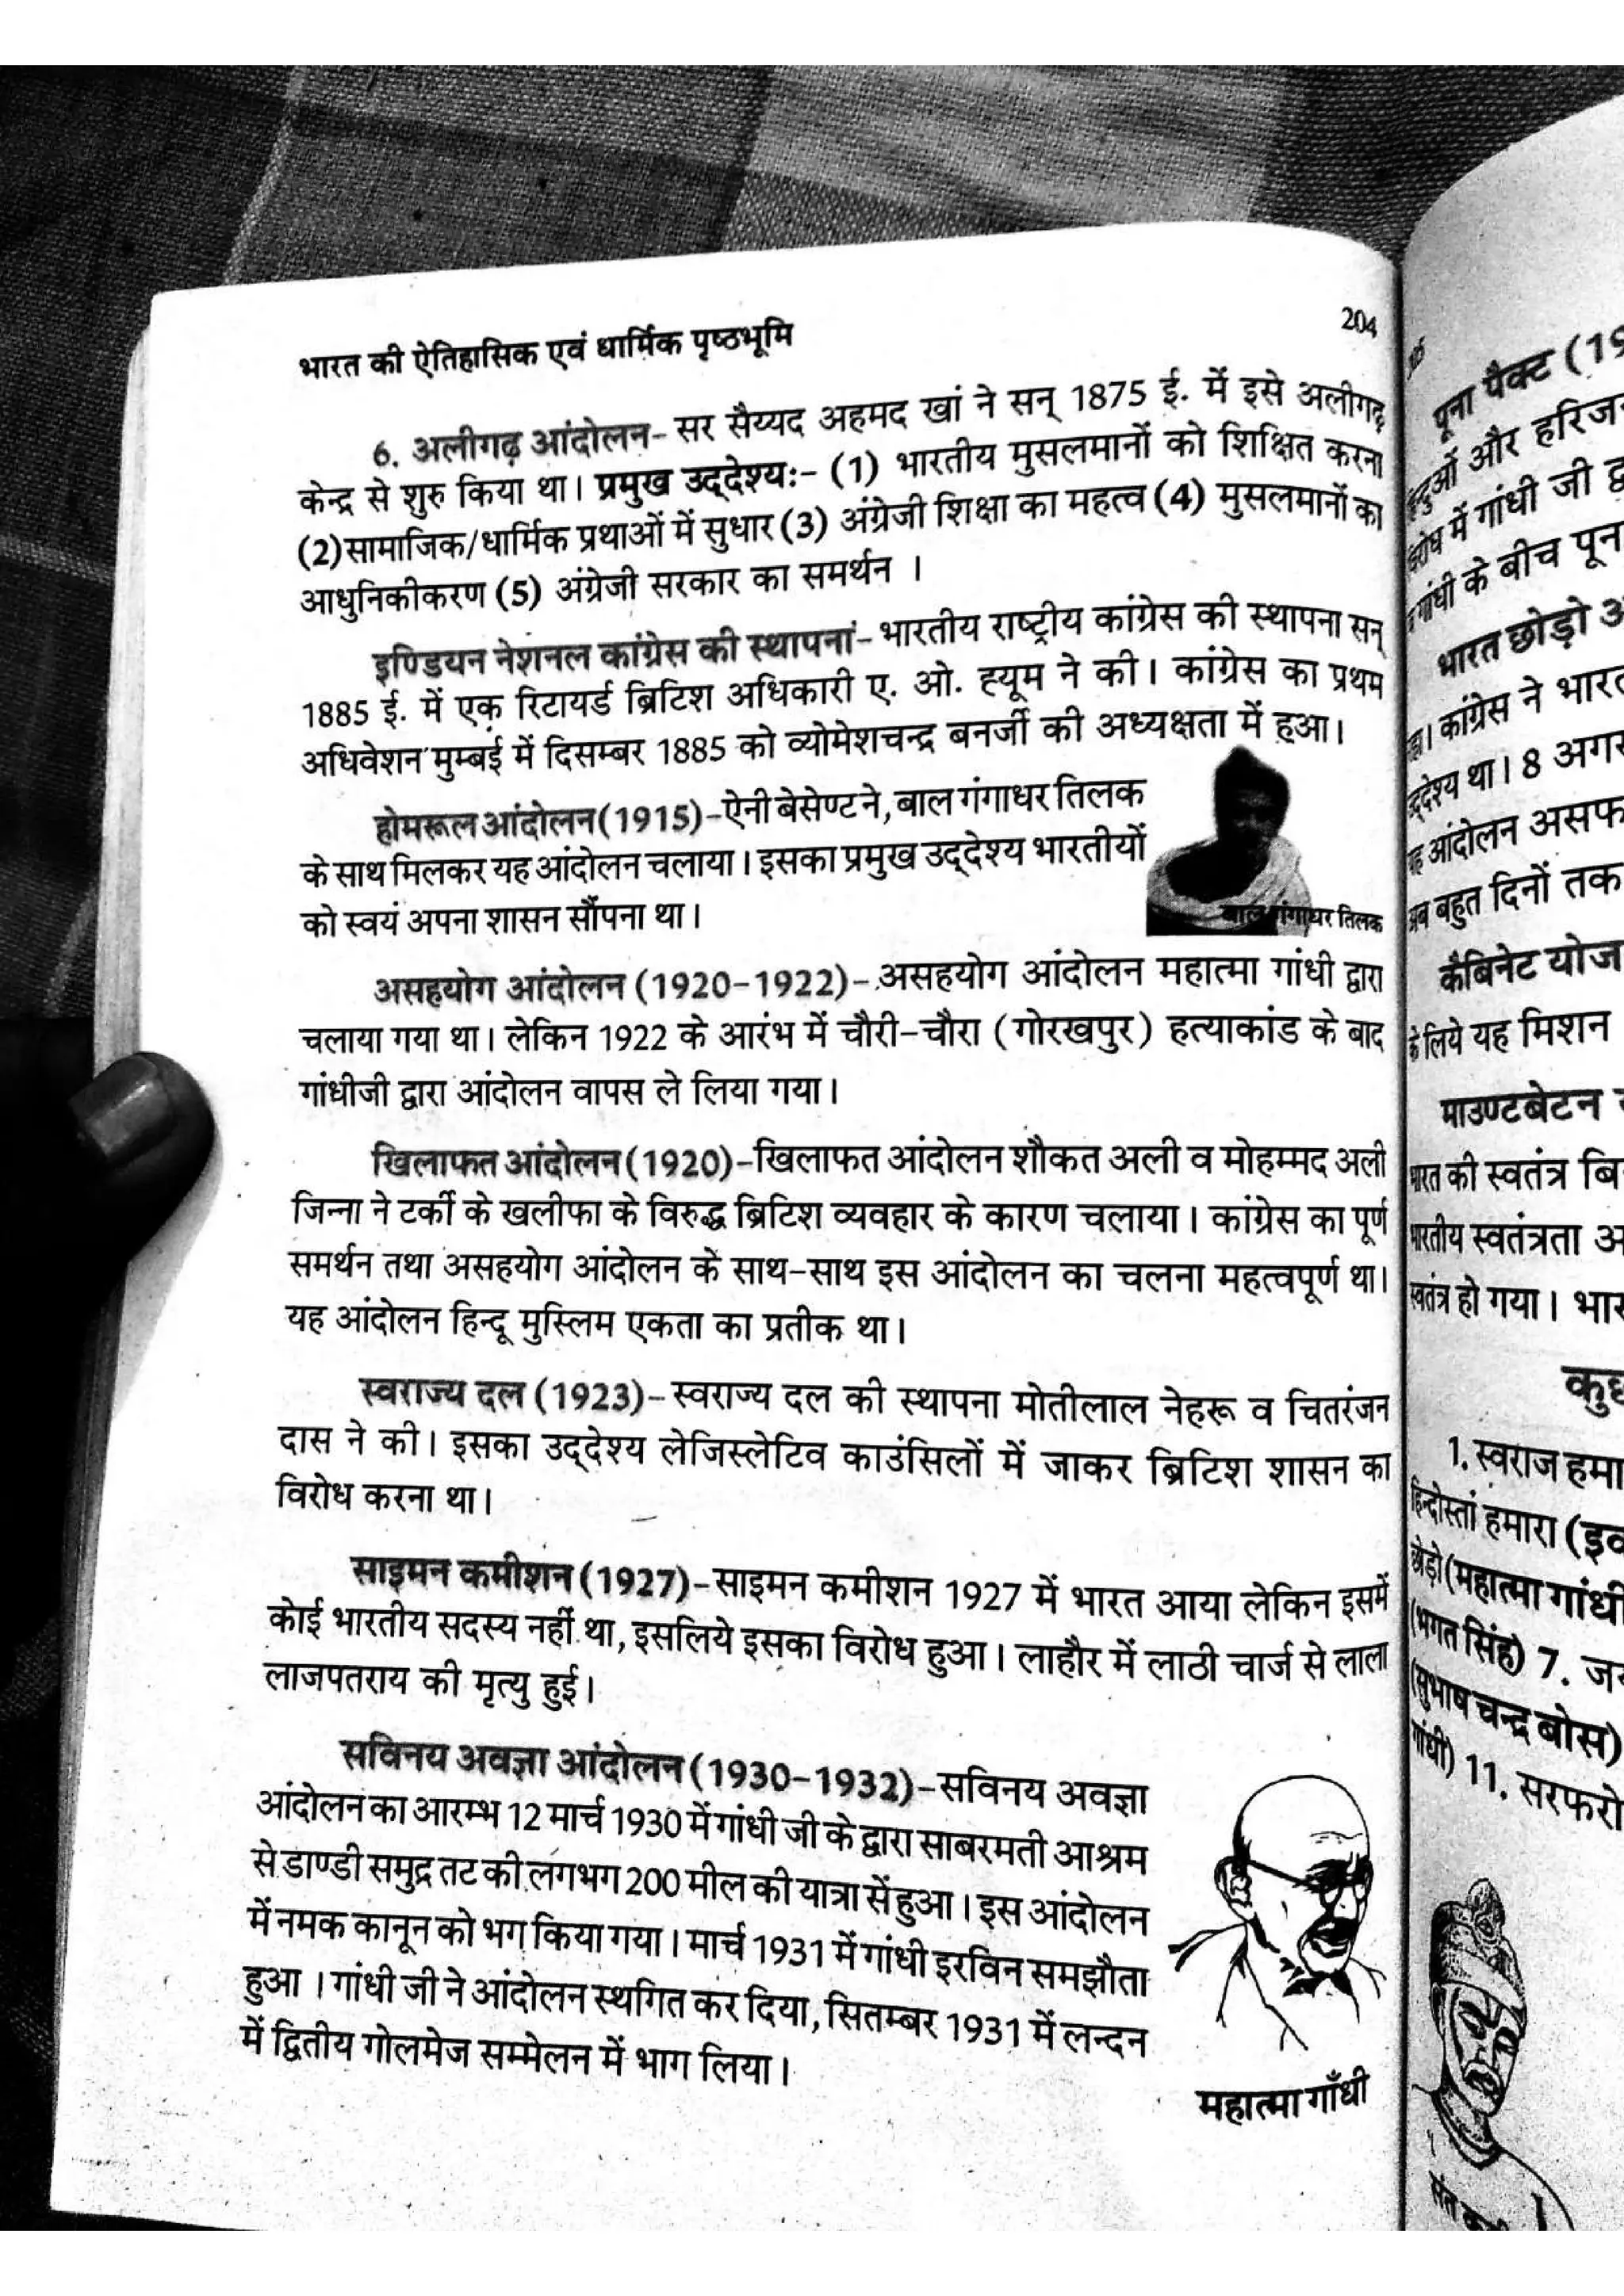 भारत की ऐतिहासिक एवं धार्मिक पृष्ठभूमि
204
6. अलीगढ़ आंदोलन- सर सैय्यद अहमद खां ने सन् 1875 ई. में इसे अलीगढ़
केन्द्र से शुरु किया था। प्रमुख उद्देश्यः- (1) भारतीय मुसलमानों को शिक्षित करना
(2)सामाजिक/धार्मिक प्रथाओं में सुधार (3) अंग्रेजी शिक्षा का महत्व (4) मुसलमानों का
आधुनिकीकरण (5) अंग्रेजी सरकार का समर्थन ।
इण्डियन नेशनल कांग्रेस की स्थापनां- भारतीय राष्ट्रीय कांग्रेस की स्थापना सन्
1885 ई. में एक रिटायर्ड ब्रिटिश अधिकारी ए. ओ. ह्यूम ने की। कांग्रेस का प्रथम
अधिवेशन मुम्बई में दिसम्बर 1885 को व्योमेशचन्द्र बनर्जी की अध्यक्षता में हुआ।
होमरूल आंदोलन(1915)-ऐनी बेसेण्ट ने, बाल गंगाधर तिलक
के साथ मिलकर यह आंदोलन चलाया। इसका प्रमुख उद्देश्य भारतीयों
को स्वयं अपना शासन सौंपना था।
बाल गंगाधर तिलक
असहयोग आंदोलन (1920-1922)- असहयोग आंदोलन महात्मा गांधी द्वारा
चलाया गया था। लेकिन 1922 के आरंभ में चौरी-चौरा (गोरखपुर) हत्याकांड के बाद
गांधीजी द्वारा आंदोलन वापस ले लिया गया।
खिलाफत आंदोलन(1920)-खिलाफत आंदोलन शौकत अली व मोहम्मद अली
जिन्ना ने टर्की के खलीफा के विरुद्ध ब्रिटिश व्यवहार के कारण चलाया। कांग्रेस का पूर्ण
समर्थन तथा असहयोग आंदोलन के साथ-साथ इस आंदोलन का चलना महत्वपूर्ण था।
यह आंदोलन हिन्दू मुस्लिम एकता का प्रतीक था।
स्वराज्य दल (1923)- स्वराज्य दल की स्थापना मोतीलाल नेहरू व चितरंजन
दास ने की। इसका उद्देश्य लेजिस्लेटिव काउंसिलों में जाकर ब्रिटिश शासन का
विरोध करना था।
साइमन कमीशन (1927)- साइमन कमीशन 1927 में भारत आया लेकिन इसमें
कोई भारतीय सदस्य नहीं था, इसलिये इसका विरोध हुआ। लाहौर में लाठी चार्ज से लाला
लाजपतराय की मृत्यु हुई।
सविनय अवज्ञा आंदोलन(1930-1932)-सविनय अवज्ञा
आंदोलन का आरम्भ 12 मार्च 1930 में गांधी जी के द्वारा साबरमती आश्रम
से डाण्डी समुद्र तट की लगभग 200 मील की यात्रा सें हुआ। इस आंदोलन
में नमक कानून को भग किया गया। मार्च 1931 में गांधी इरविन समझौता
हुआ । गांधी जी ने आंदोलन स्थगित कर दिया, सितम्बर 1931 में लन्दन
में द्वितीय गोलमेज सम्मेलन में भाग लिया।
महात्मा गाँधी
पूना पैक्ट (19
और हरिजन
में गांधी जी
गांधी के बीच पून
भारत छोड़ो
कांग्रेस ने भारत
था। 8 अगस
आंदोलन असफ
बहुत दिनों तक
कैबिनेट योज
के लिये यह मिशन
माउण्टबेटन
भारत की स्वतंत्र बि
भारतीय स्वतंत्रता
स्वतंत्र हो गया। भार
कुछ
1. स्वराज हमा
हिन्दोस्तां हमारा (इक
छोड़ो (महात्मा गांधी
(भगत सिंह) 7. ज
(सुभाष चन्द्र बोस)
गांधी) 11. सरफरो